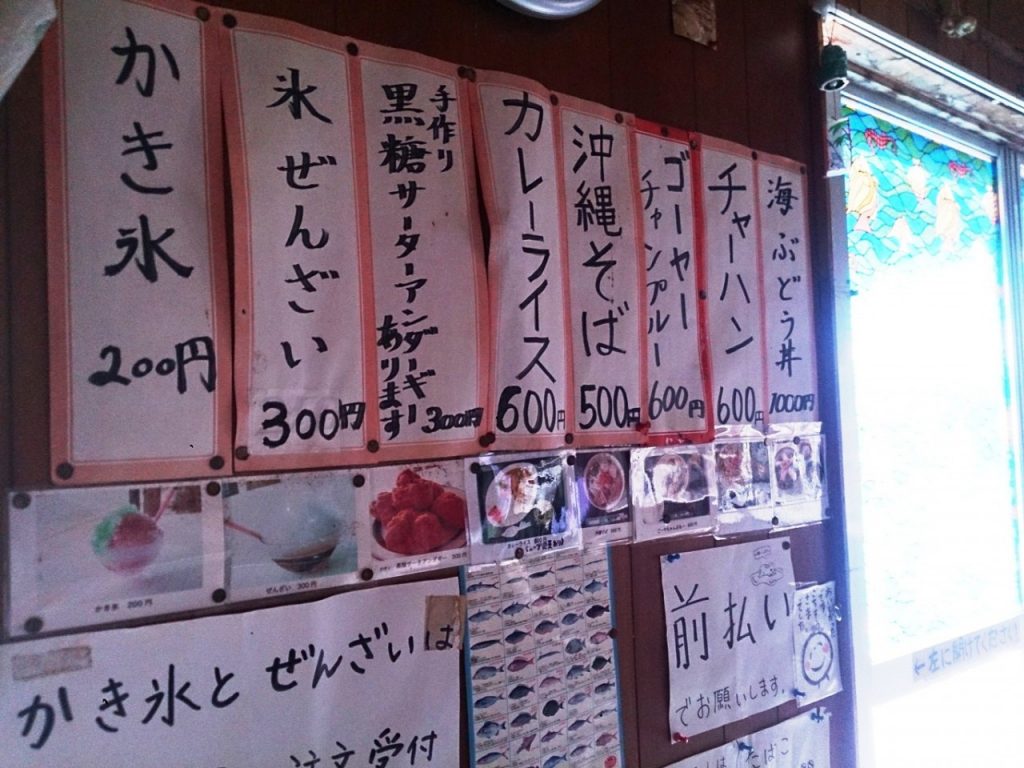 かき氷
200円
氷ぜんざい
300円
手作り
黒糖サーターアンダーギー
あります
300円
カレーライス
600円
沖縄そば
500円
ゴーヤー
チャンプルー
600円
チャーハン
600円
海ぶどう丼
1000円
かき氷 200円
ぜんざい 300円
かき氷とぜんざいは
注文受付
前払い
でお願いします。
←左に開けてください
たばこ